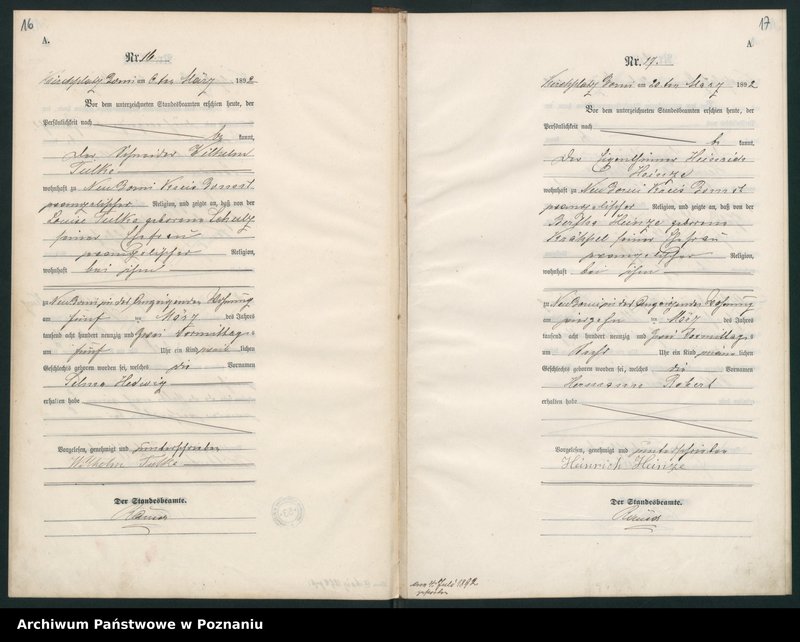 16
A.
Nr. 16.
Kirchplatz Bomst am 6ten März 1892
Vor dem unterzeichneten Standesbeamten erschien heute, der
Persönlichkeit nach
kannt,
Der Schneider Wilhelm
Tulke
wohnhaft zu Neu Kreis Bomst
evangelischer Religion, und zeigte an, daß von der
Louise Tulke geborene Schulz
seiner Ehefrau
evangelischer Religion,
wohnhaft bei ihm
zu Neu in des Anzeigenden Wohnung
am fünf ten März des Jahres
tausend acht hundert neunzig und zwei Vormittags
um fünf Uhr ein Kind weib lichen
Geschlechts geboren worden sei, welches die Vornamen
Selma Hedwig
erhalten habe
Vorgelesen, genehmigt und unterschrieben
Wilhelm Tulke
Der Standesbeamte.
17
A
Nr. 17.
Kirchplatz am 20ten März 1892
Vor dem unterzeichneten Standesbeamten erschien heute, der
Persönlichkeit nach
be kannt,
Der Eigenthümer Heinrich
Heinze
wohnhaft zu Neu Kreis Bomst
evangelischer Religion, und zeigte an, daß von der
Bertha Heinze geborene
seiner Ehefrau
evangelischer Religion,
wohnhaft bei ihm
zu Neu in des Anzeigenden Wohnung
am ten März des Jahres
tausend acht hundert neunzig und zwei Vormittags
um acht Uhr ein Kind männ lichen
Geschlechts geboren worden sei, welches die Vornamen
Hermann Robert
erhalten habe
Vorgelesen, genehmigt und unterschrieben
Heinrich Heinze
Der Standesbeamte.
Juli 1892
Archiwum Państwowe w Poznaniu